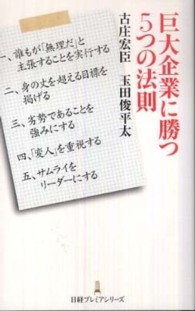 巨大企業に勝つ
5つの法則
古庄宏臣 玉田俊平太
一、誰もが「無理だ」と
主張することを実行する
二、身の丈を超える目標を
掲げる
三、劣勢であることを
強みにする
四、「変人」を重視する
五、サムライを
リーダーにする
日経プレミアシリーズ